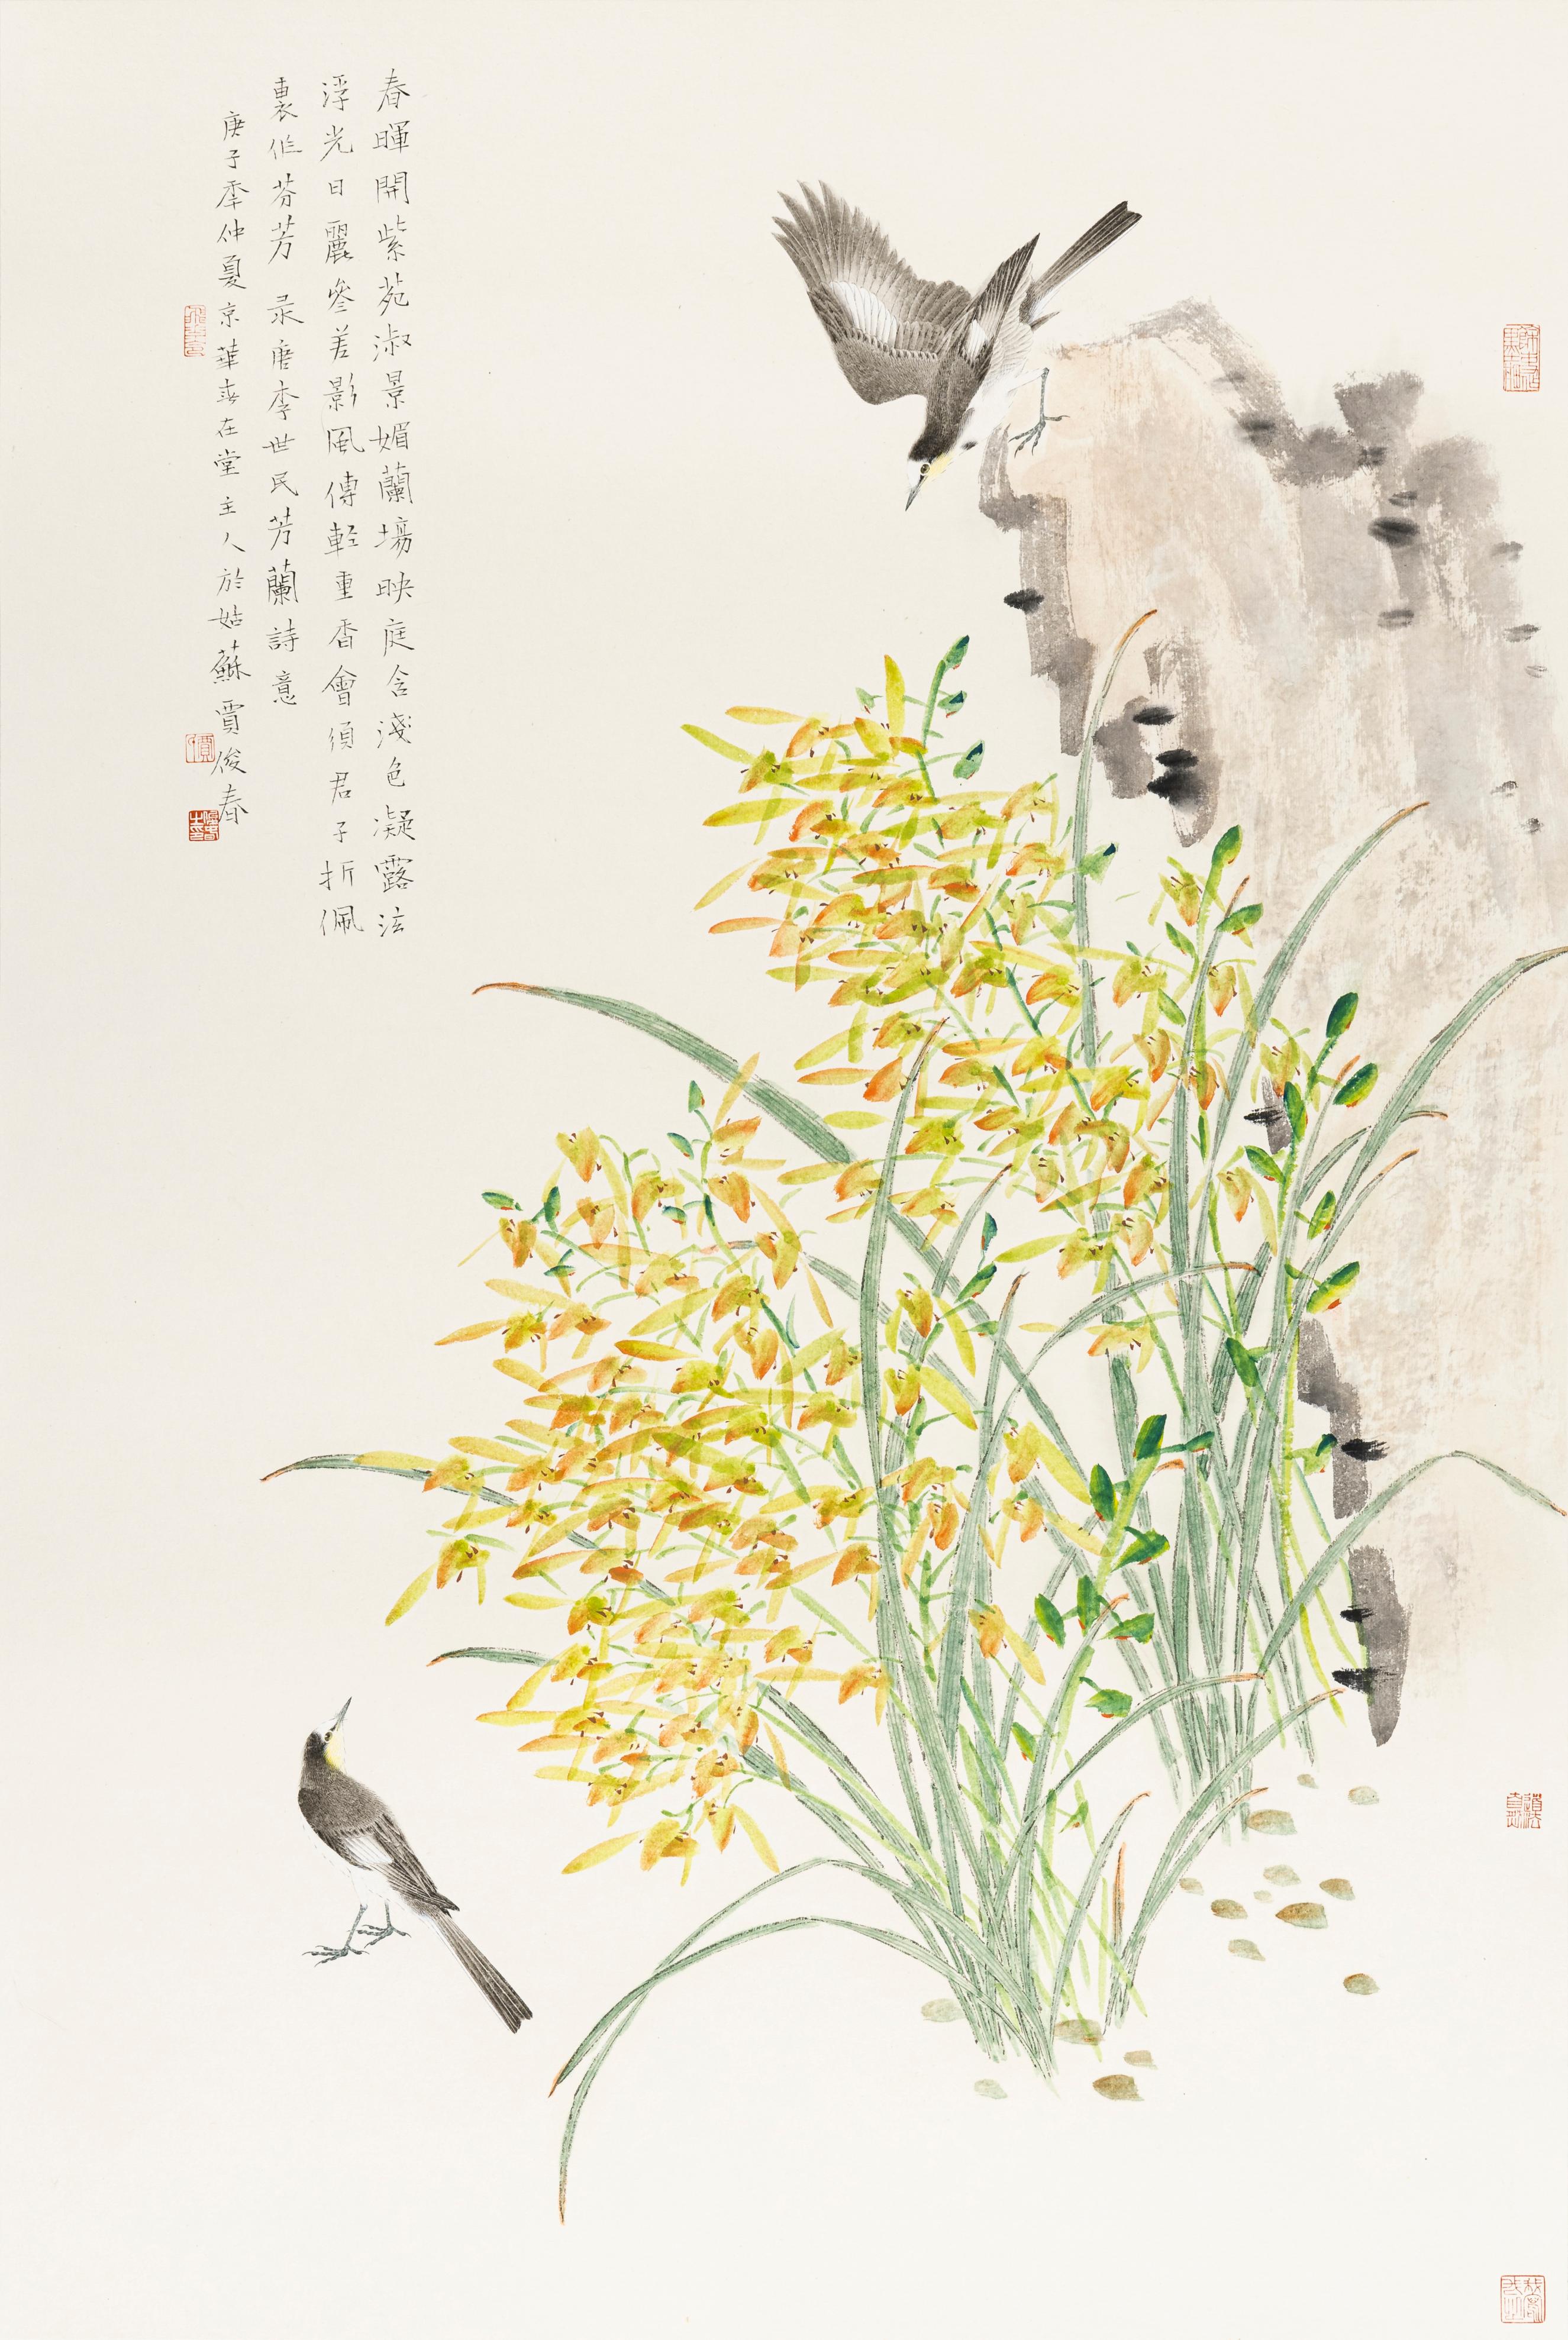 春暉開紫苑淑景媚蘭場映庭含淺色凝露泫
浮光日麗參差影風傳輕重香會須君子折佩
裏作芬芳 录唐李世民芳蘭詩意
庚子季仲夏京華喜在堂主人於姑蘇賈俊春